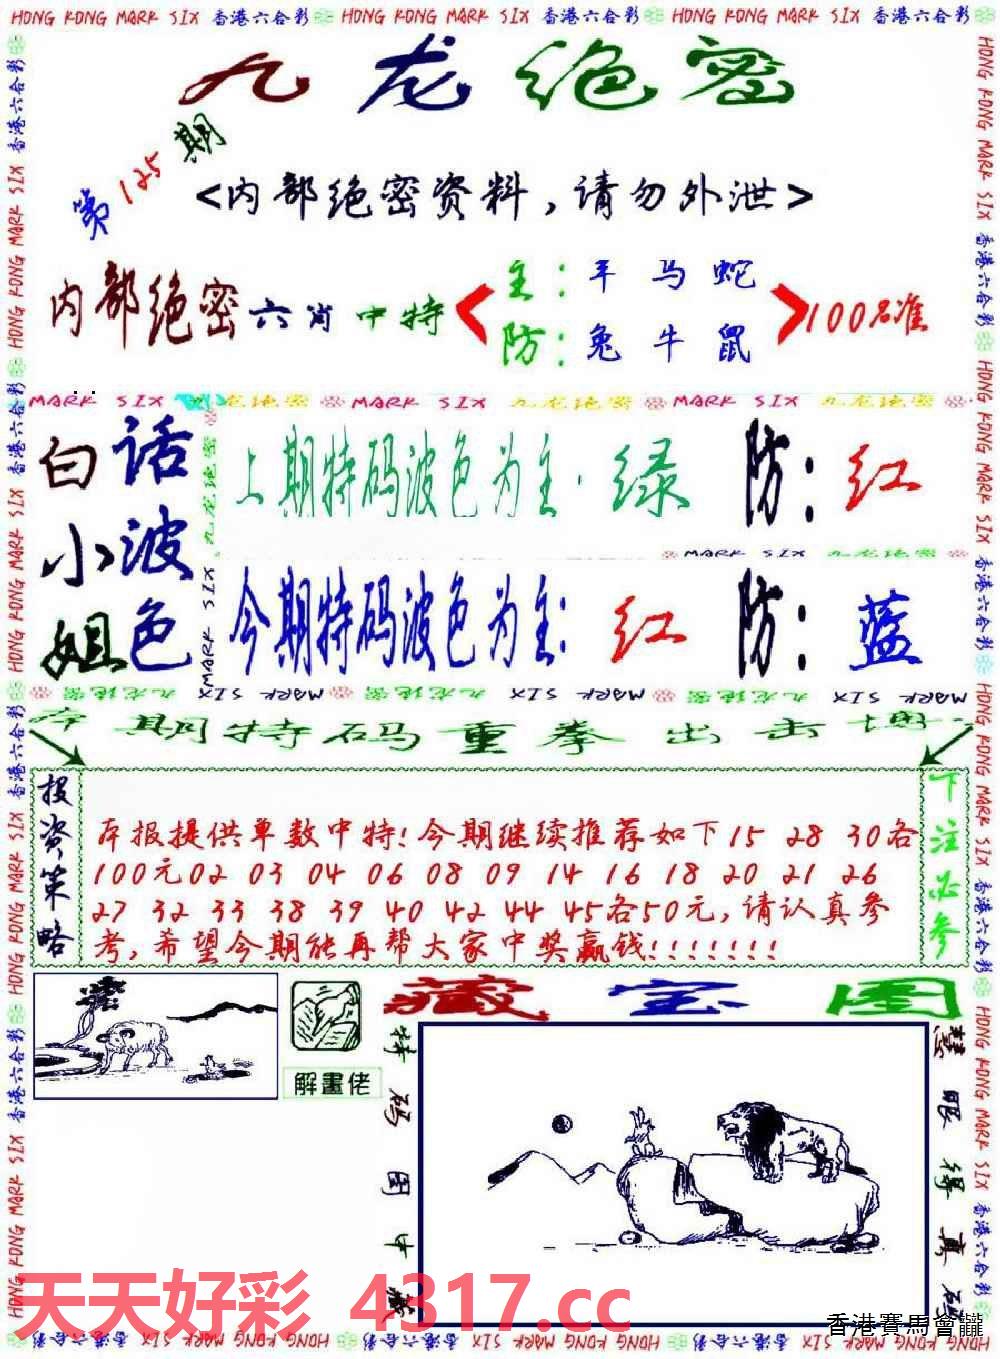 HONG KONG MARK SIX 香港六合彩 HONG KONG MARK SIX 香港六合彩 HONG KONG MARK SIX 香港六合彩
九龙绝密
第125期
<内部绝密资料,请勿外泄>
内部绝密六肖中特
主:羊 马 蛇
防:兔 牛 鼠
100%准
MARK SIX 九龙绝密 MARK SIX 九龙绝密 MARK SIX 九龙绝密
白小姐
话波色
上期特码波色为主·绿 防:红
MARK SIX 九龙绝密
今期特码波色为主:红 防:蓝
九龙绝密 MARK SIX 九龙绝密 MARK SIX 九龙绝密 MARK SIX
期特码重拳出击
投资策略
本报提供单数中特!今期继续推荐如下15 28 30各
100元02 03 04 06 08 09 14 16 18 20 21 26
27 32 33 38 39 40 42 44 45各50元,请认真参
考,希望今期能再帮大家中奖赢钱!!!!!!!
下注必参
解畫佬
藏宝图
特码图中藏
慧眼得真
天天好彩 4317.cc
香港賽馬會
HONG KONG MARK SIX 香港六合彩 HONG KONG MARK SIX 香港六合彩 HONG KONG MARK SIX 香港六合彩